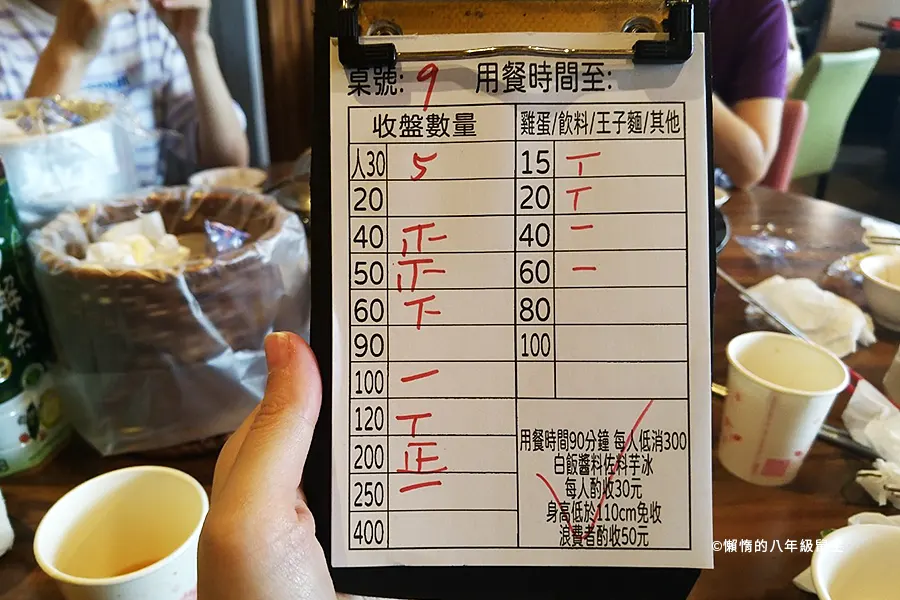 桌號: 9 用餐時間至:
收盤數量 雞蛋/飲料/王子麵/其他
人30 5 15 丅
20 20 丅
40 正 40 一
50 正 60 一
60 下 80
90 100
100 一
120 丅
200 正
250 一
400
用餐時間90分鐘 每人低消300
白飯醬料佐料芋冰
每人酌收30元
身高低於110cm免收
浪費者酌收50元